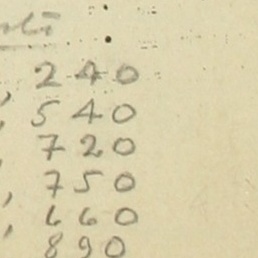 240
, 540
720
, 750
, 660
890